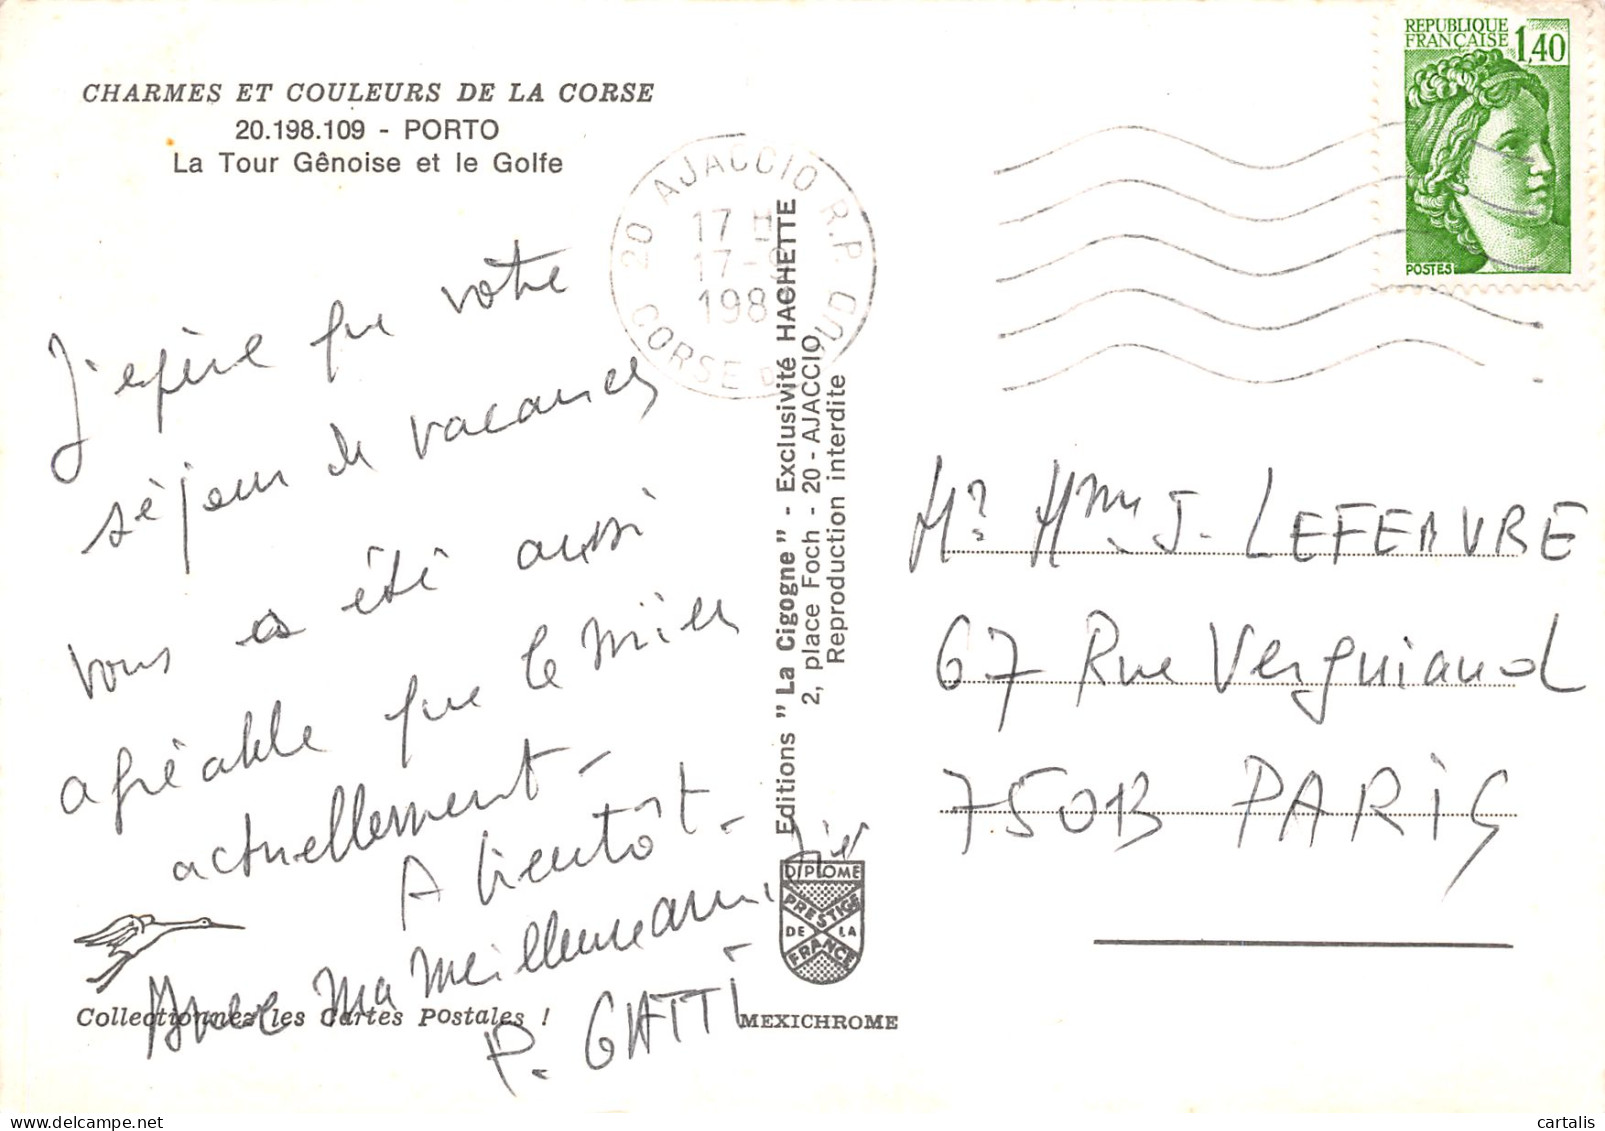 CHARMES ET COULEURS DE LA CORSE
20.198.109 - PORTO
La Tour Gênoise et le Golfe
REPUBLIQUE
FRANÇAISE 1,40
POSTES
20 AJACCIO R.P.
17 H
17-9
198
CORSE DU SUD
J'espère que votre
séjour de vacances
vous a été aussi
agréable que le mien
actuellement-
A bientôt-
Avec ma meilleure amitié
P. GATTI
Editions "La Cigogne" - Exclusivité HACHETTE
2, place Foch - 20 - AJACCIO
Reproduction interdite
Mr Mme J. LEFEBVRE
67 Rue Vergniaud
75013 PARIS
DIPLOME
PRESTIGE
DE LA
FRANCE
Collectionnez les Cartes Postales !
MEXICHROME
cartalis